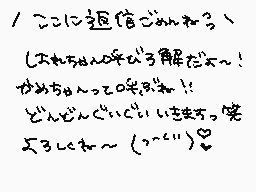 / ここに返信ごめんねっ \
しおれちゃん呼びろ解だよ〜!
かめちゃんって呼ぶね!!
どんどんぐいぐいいきますっ笑
よろしくね〜 (っ〜ぐ)♡